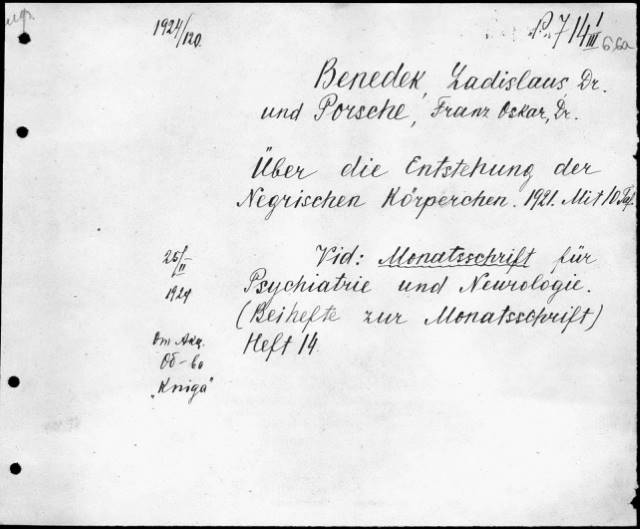 1924/120.
P. 7 14 I/III 6.6a
Benedek, Ladislaus, Dr.
und Porsche, Franz Oskar, Dr.
Über die Entstehung der
Negrischen Körperchen. 1921. Mit 10 Taf.
Vid: Monatsschrift für
Psychiatrie und Neurologie.
(Beihefte zur Monatsschrift)
Heft 14
25/II
1924
Om Акц.
Об-ва
„Kniga"